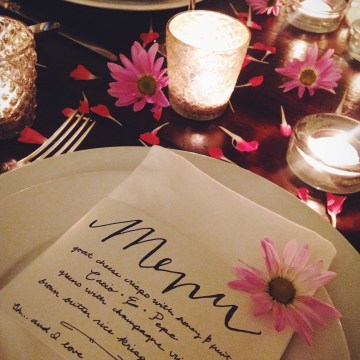 Menu
goat cheese crisps with honey & fruit
Cacio · E · Pepe
greens with champagne vi
brown butter rice krisp
Oh.. and I love